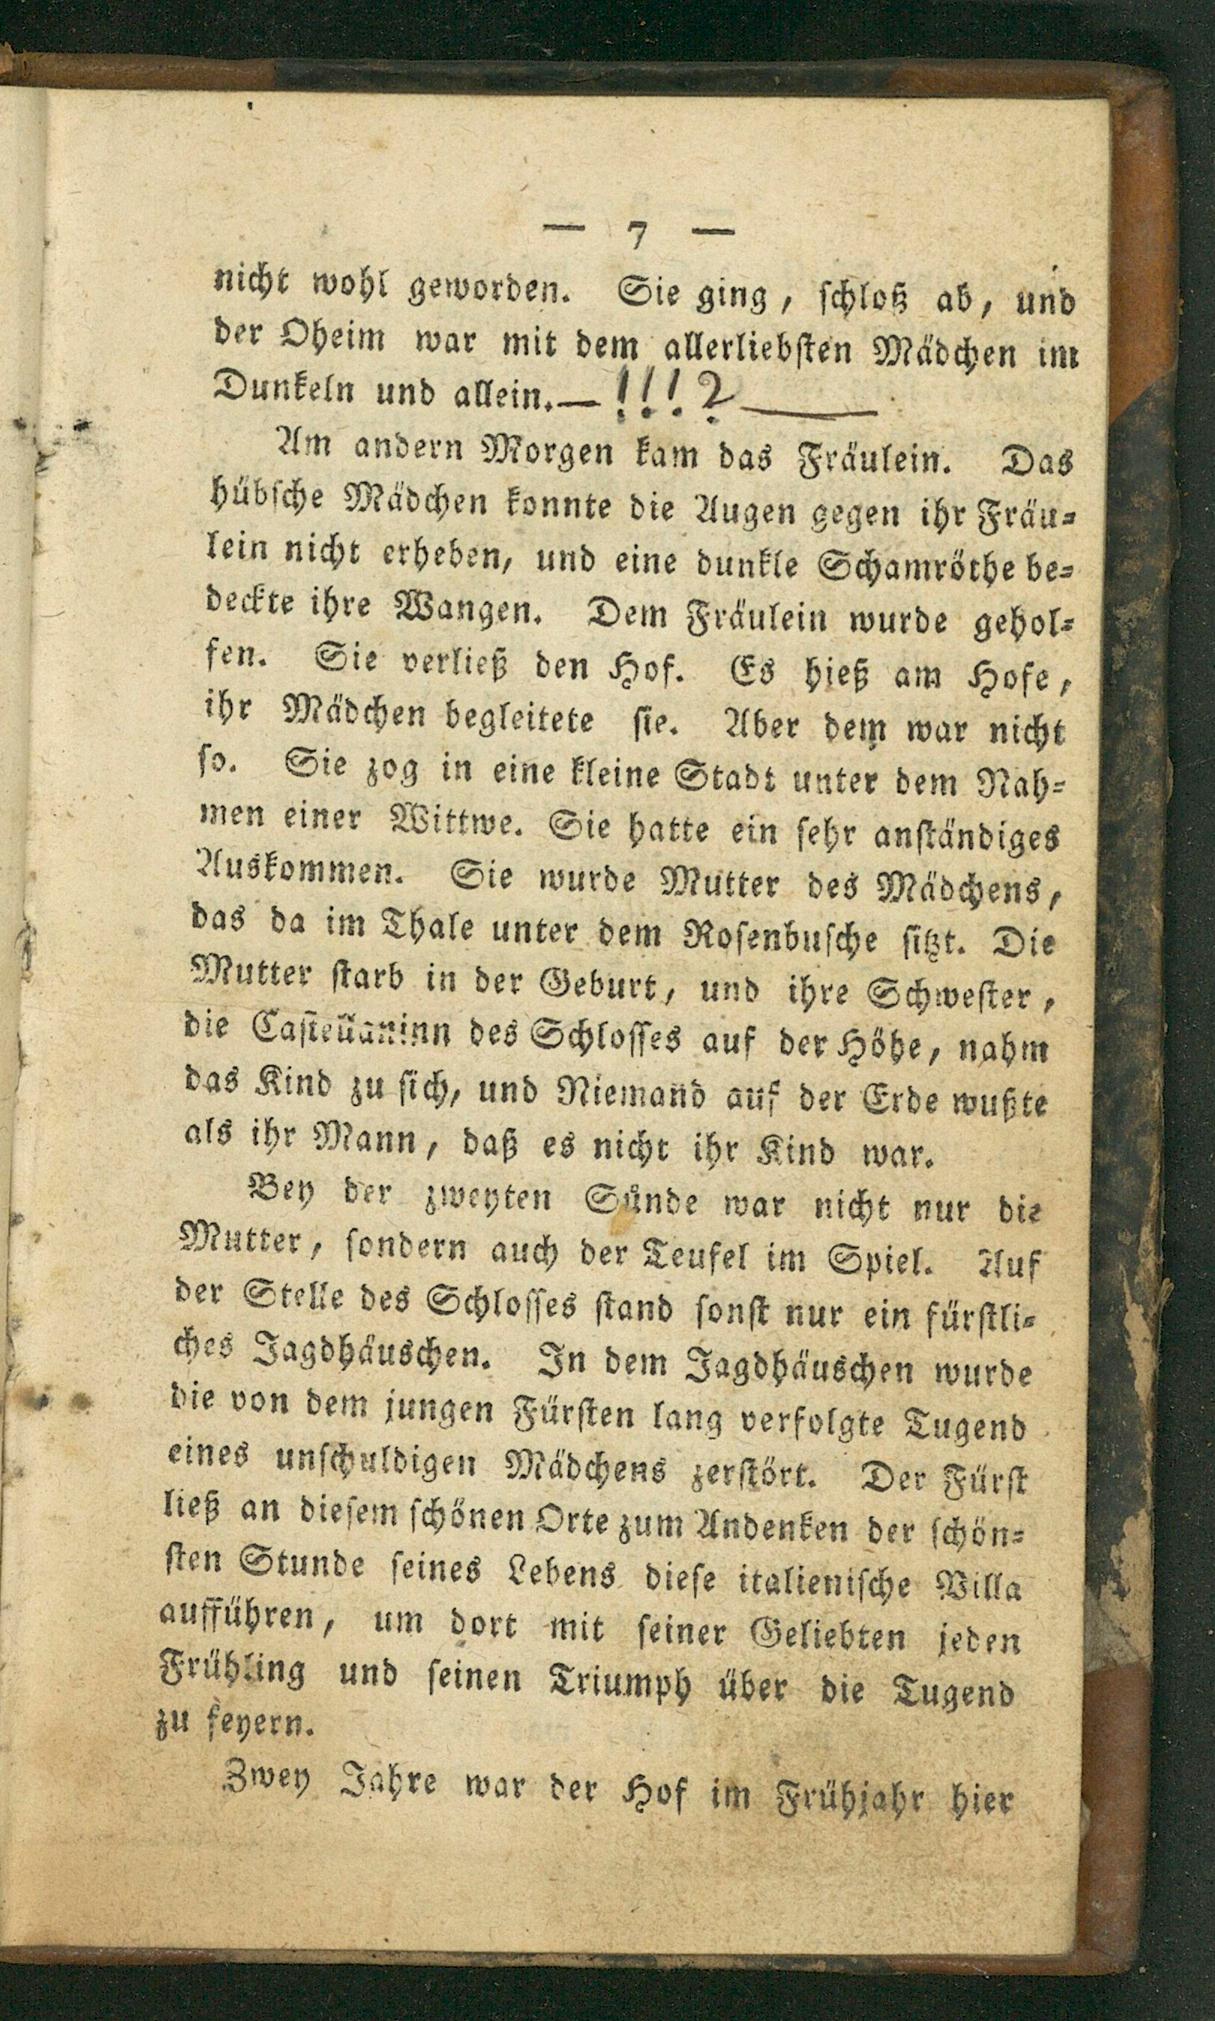 — 7 —
nicht wohl geworden. Sie ging, schloß ab, und
der Oheim war mit dem allerliebsten Mädchen im
Dunkeln und allein.— !!!? —
Am andern Morgen kam das Fräulein. Das
hübsche Mädchen konnte die Augen gegen ihr Fräu-
lein nicht erheben, und eine dunkle Schamröthe be-
deckte ihre Wangen. Dem Fräulein wurde gehol-
fen. Sie verließ den Hof. Es hieß am Hofe,
ihr Mädchen begleitete sie. Aber dem war nicht
so. Sie zog in eine kleine Stadt unter dem Nah-
men einer Wittwe. Sie hatte ein sehr anständiges
Auskommen. Sie wurde Mutter des Mädchens,
das da im Thale unter dem Rosenbusche sitzt. Die
Mutter starb in der Geburt, und ihre Schwester,
die Castellaninn des Schlosses auf der Höhe, nahm
das Kind zu sich, und Niemand auf der Erde wußte
als ihr Mann, daß es nicht ihr Kind war.
Bey der zweyten Sünde war nicht nur die
Mutter, sondern auch der Teufel im Spiel. Auf
der Stelle des Schlosses stand sonst nur ein fürstli-
ches Jagdhäuschen. In dem Jagdhäuschen wurde
die von dem jungen Fürsten lang verfolgte Tugend
eines unschuldigen Mädchens zerstört. Der Fürst
ließ an diesem schönen Orte zum Andenken der schön-
sten Stunde seines Lebens diese italienische Villa
aufführen, um dort mit seiner Geliebten jeden
Frühling und seinen Triumph über die Tugend
zu feyern.
Zwey Jahre war der Hof im Frühjahr hier